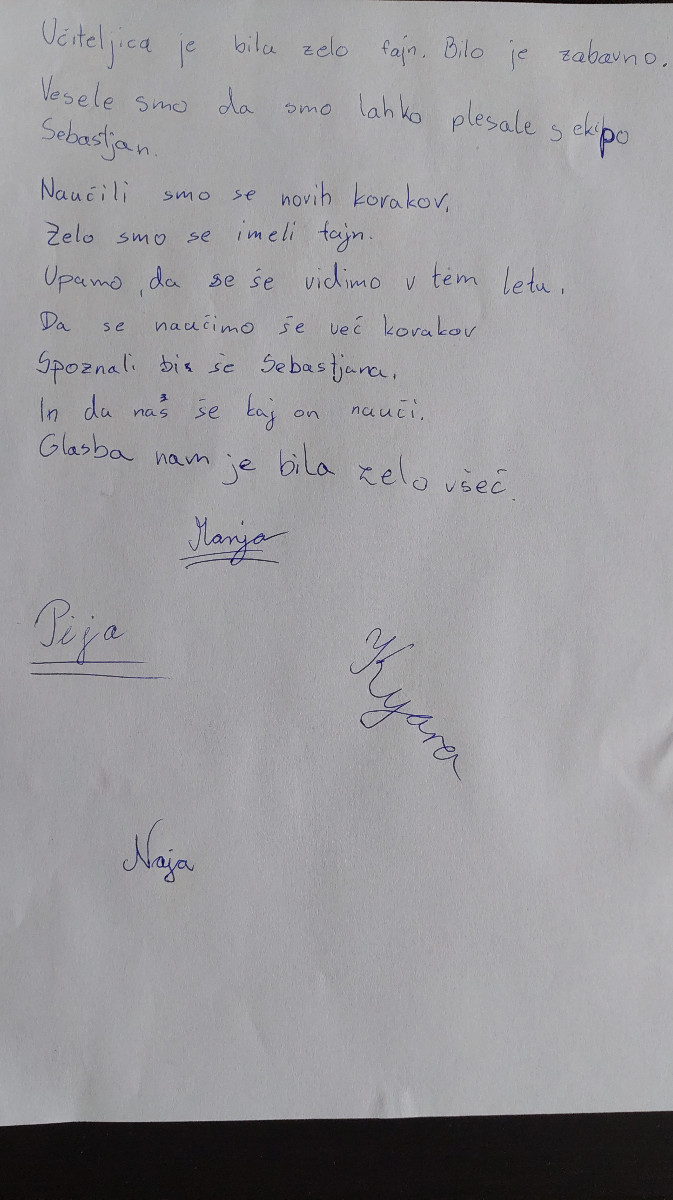 Učiteljica je bila zelo fajn. Bilo je zabavno.
Vesele smo da smo lahko plesale s ekipo
Sebastjan.
Naučili smo se novih korakov.
Zelo smo se imeli fajn.
Upamo, da se še vidimo v tem letu.
Da se naučimo še več korakov
Spoznali bi še Sebastjana.
In da naš še kaj on nauči.
Glasba nam je bila zelo všeč.
Manja
Pija
Kyara
Naja